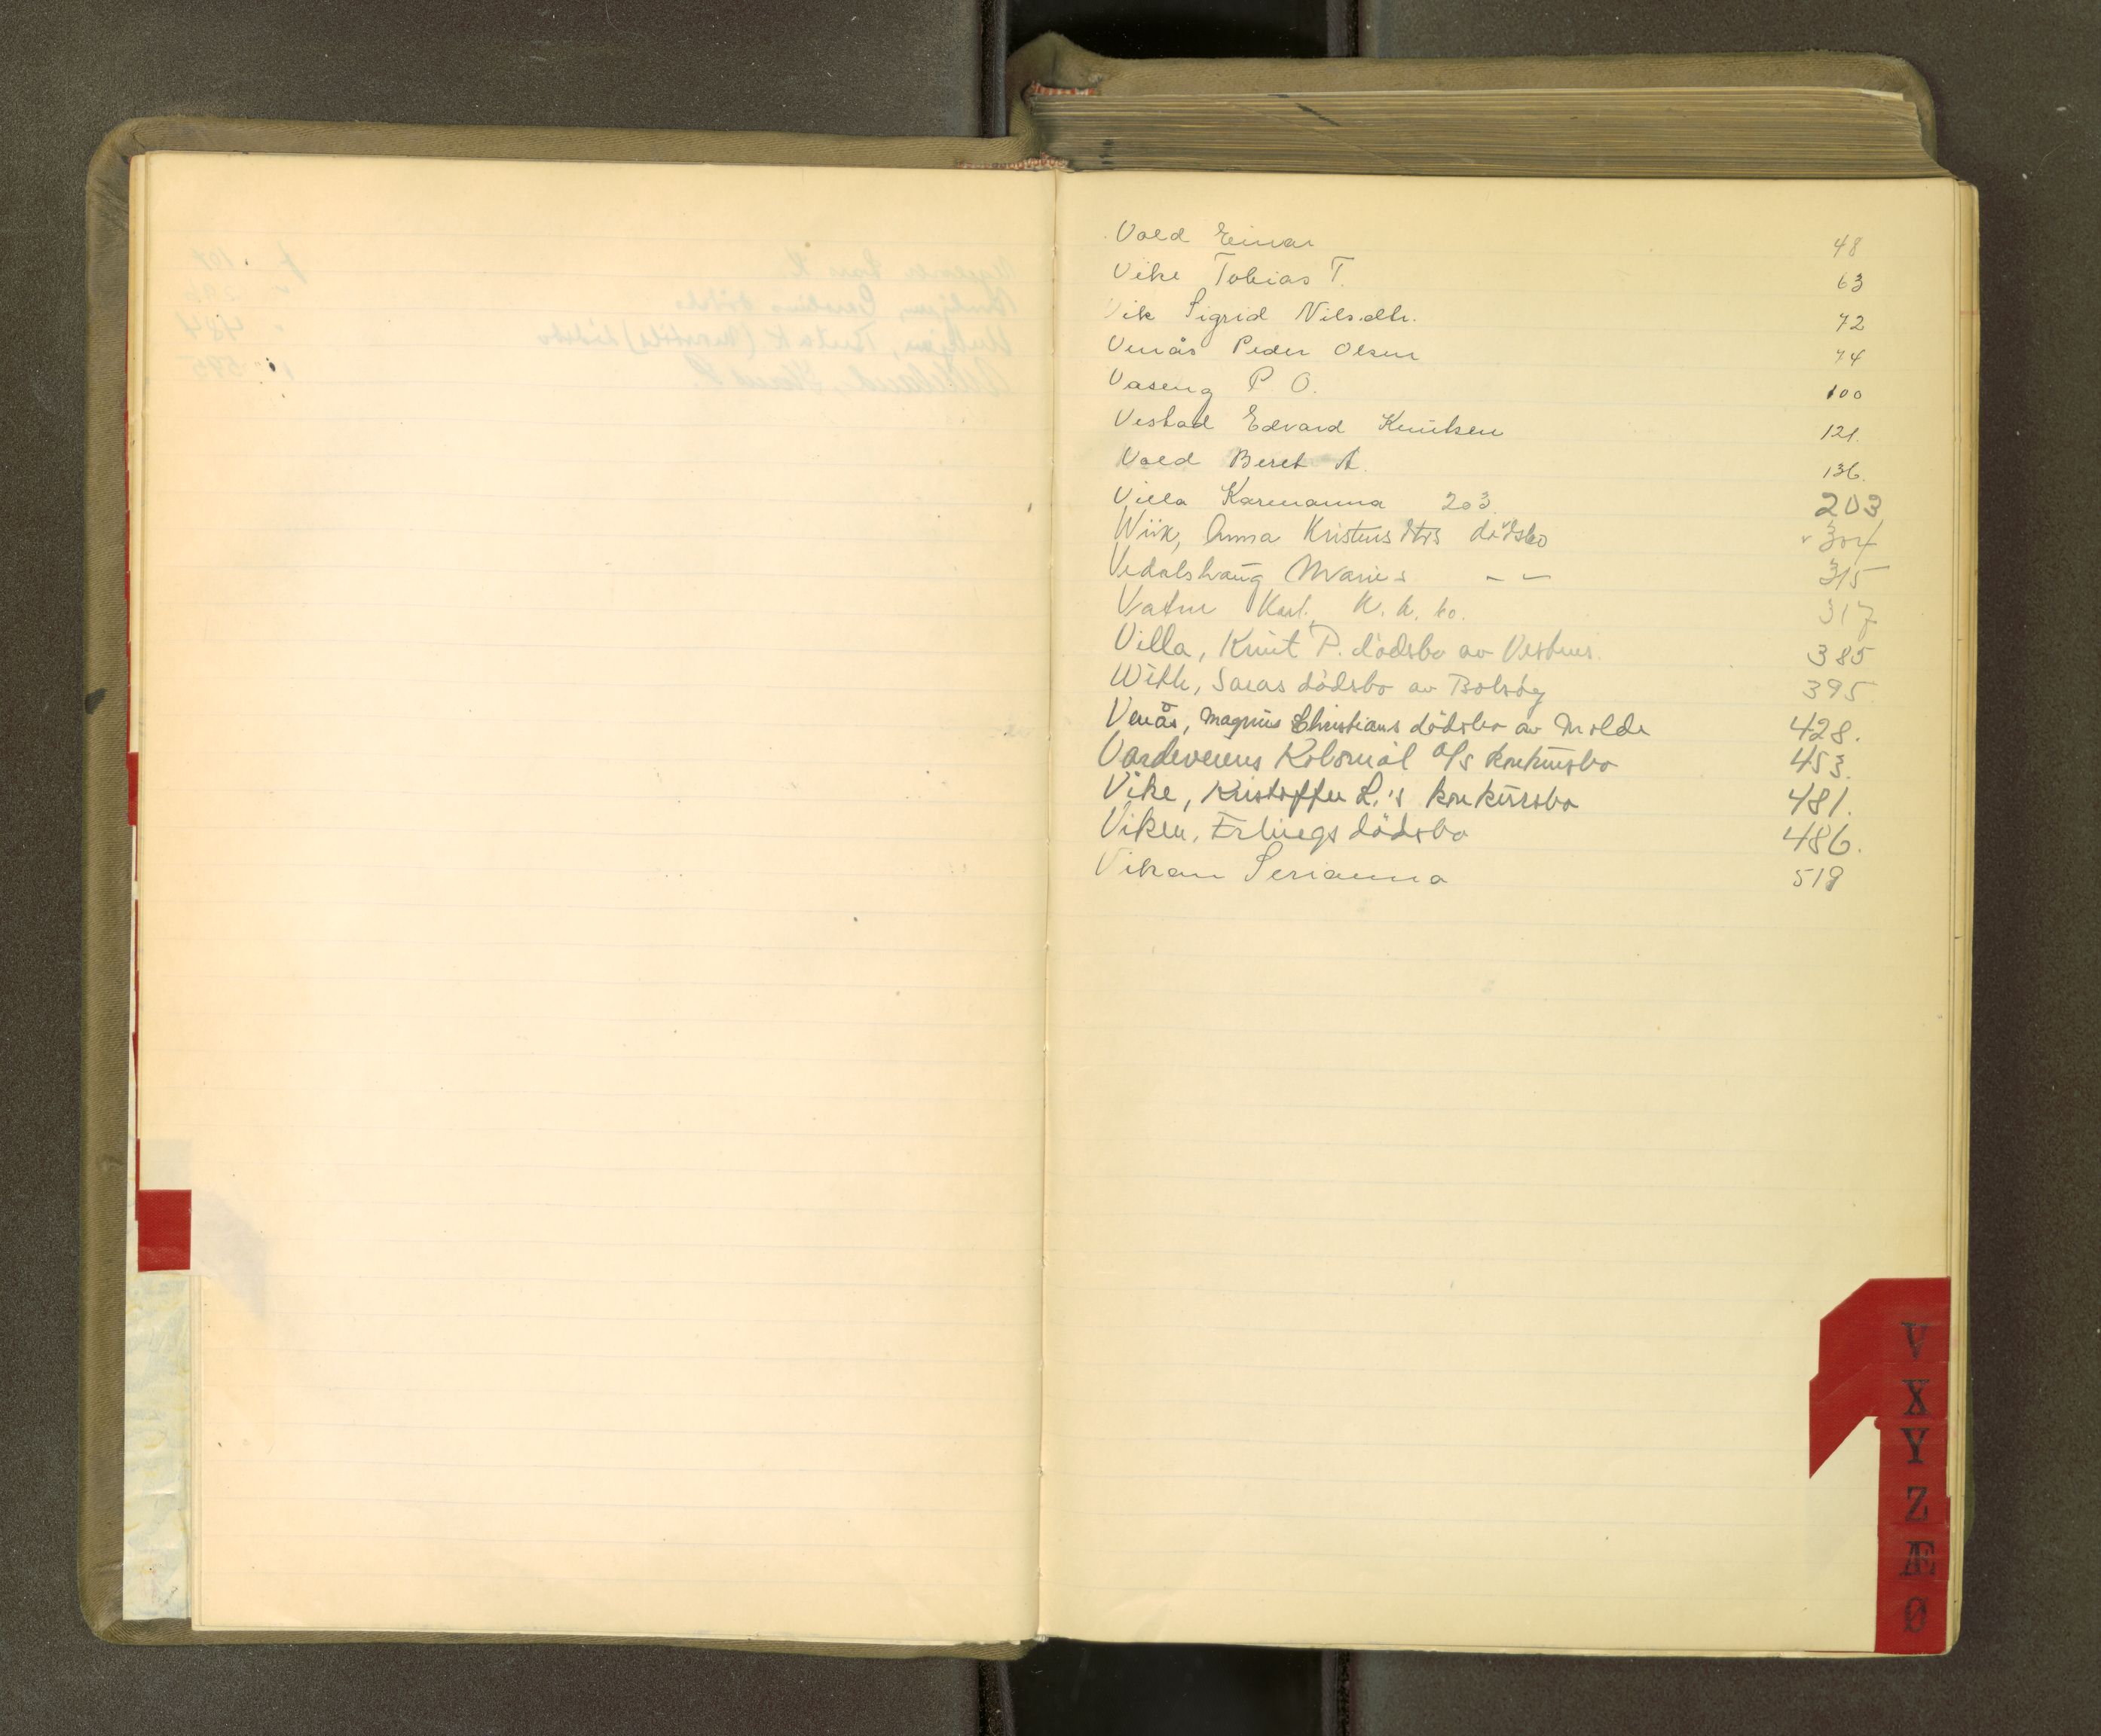 Vold Einar 48
Vike Tobias T. 63
Vik Sigrid Nilsdtr. 72
Venås Peder Olsen 74
Vaseng P O. 100
Vestad Edvard Knutsen 121.
Vold Beret A. 136.
Villa Karenanna 203. 203
Wiik, Anna Kristens dtrs dödsbo 304
Vedalshaug Marius - - 315
Vatne Karl, K. k. bo. 317
Villa, Knut P. dödsbo av Vestnes. 385
With, Saras dödsbo av Bolsöy 395
Venås, Magnus Christians dödsbo av Molde 428.
Vardeveiens Kolonial A/S konkursbo 453.
Vike, Kristoffer L.'s konkursbo 481.
Viken, Erlings dödsbo 486.
Vikan Serianna 519
V
X
Y
Z
Æ
Ø